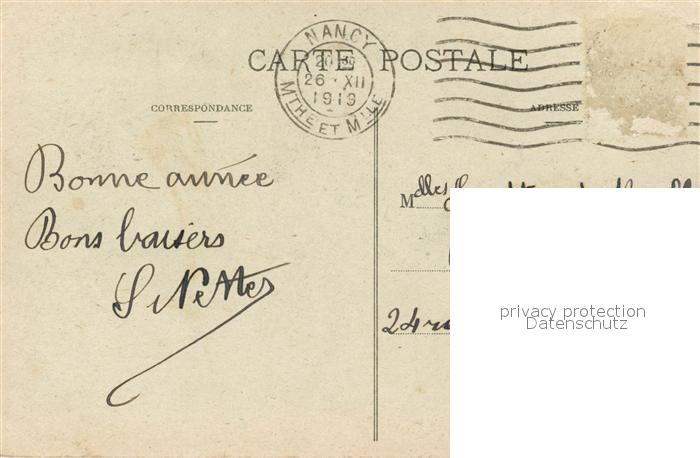 NANCY
26 · XII
1919
MTHE ET MLLE
CARTE POSTALE
CORRESPONDANCE
ADRESSE
Bonne année
Bons baisers
Mdlles
24
privacy protection
Datenschutz